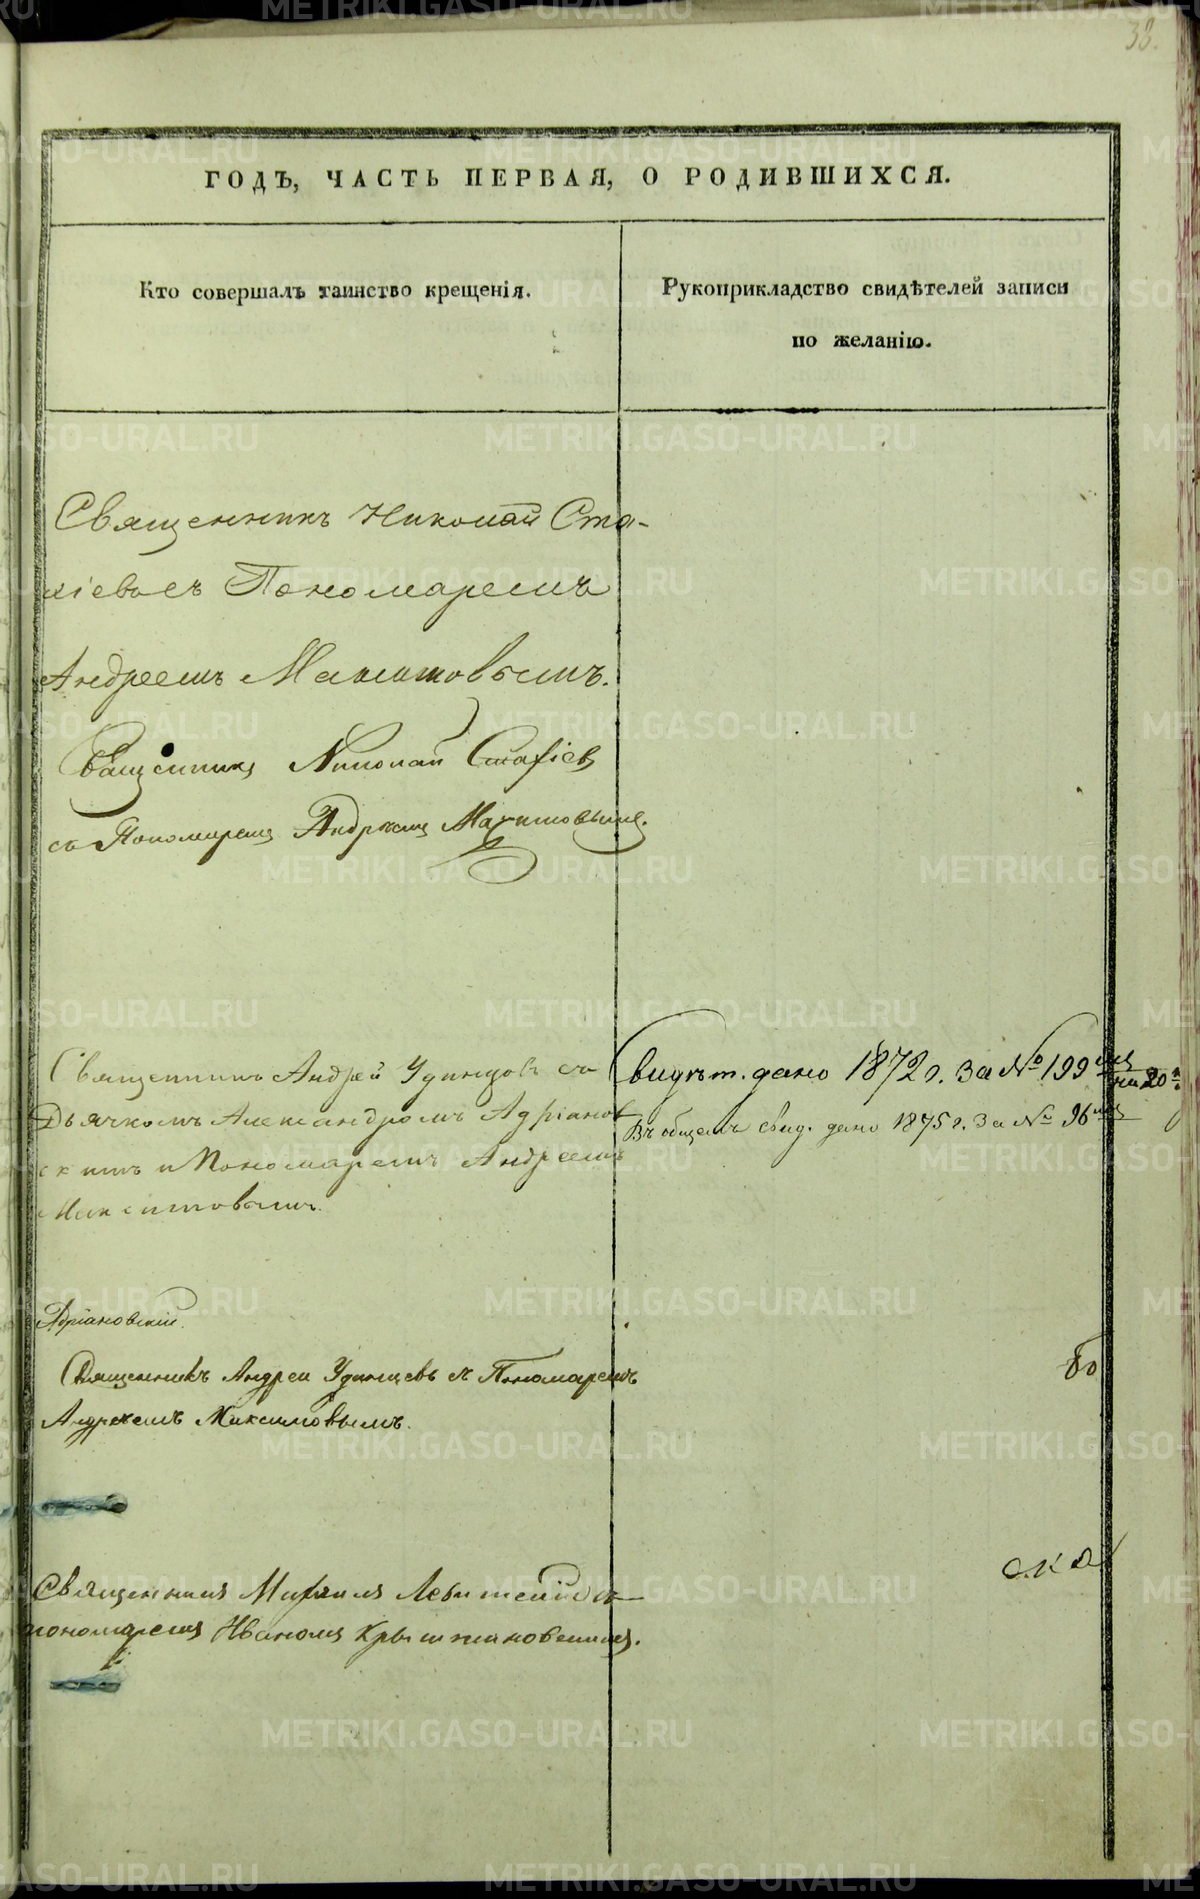 38.
ГОДЪ, ЧАСТЬ ПЕРВАЯ, О РОДИВШИХСЯ.
Кто совершалъ таинство крещенія.
Рукоприкладство свидѣтелей записи
по желанію.
Священникъ Николай Ста-
хіевъ съ Пономаремъ
Андреемъ Макситовымъ.
Священникъ Николай Стахіевъ
съ Пономаремъ Андреемъ Макситовымъ.
Священникъ Андрей Удинцовъ съ
Дьячкомъ Александромъ Адріанов
скимъ и Пономаремъ Андреемъ
Макситовымъ.
Свидѣт. дано 1872 г. За № 199
Въ общемъ свид. дано 1875 г. За № 96
Адріановскій.
Священникъ Андрей Удинцевъ съ Пономаремъ
Андреемъ Максимовымъ.
Священникъ Михаилъ съ
пономаремъ Иваномъ
METRIKI.GASO-URAL.RU